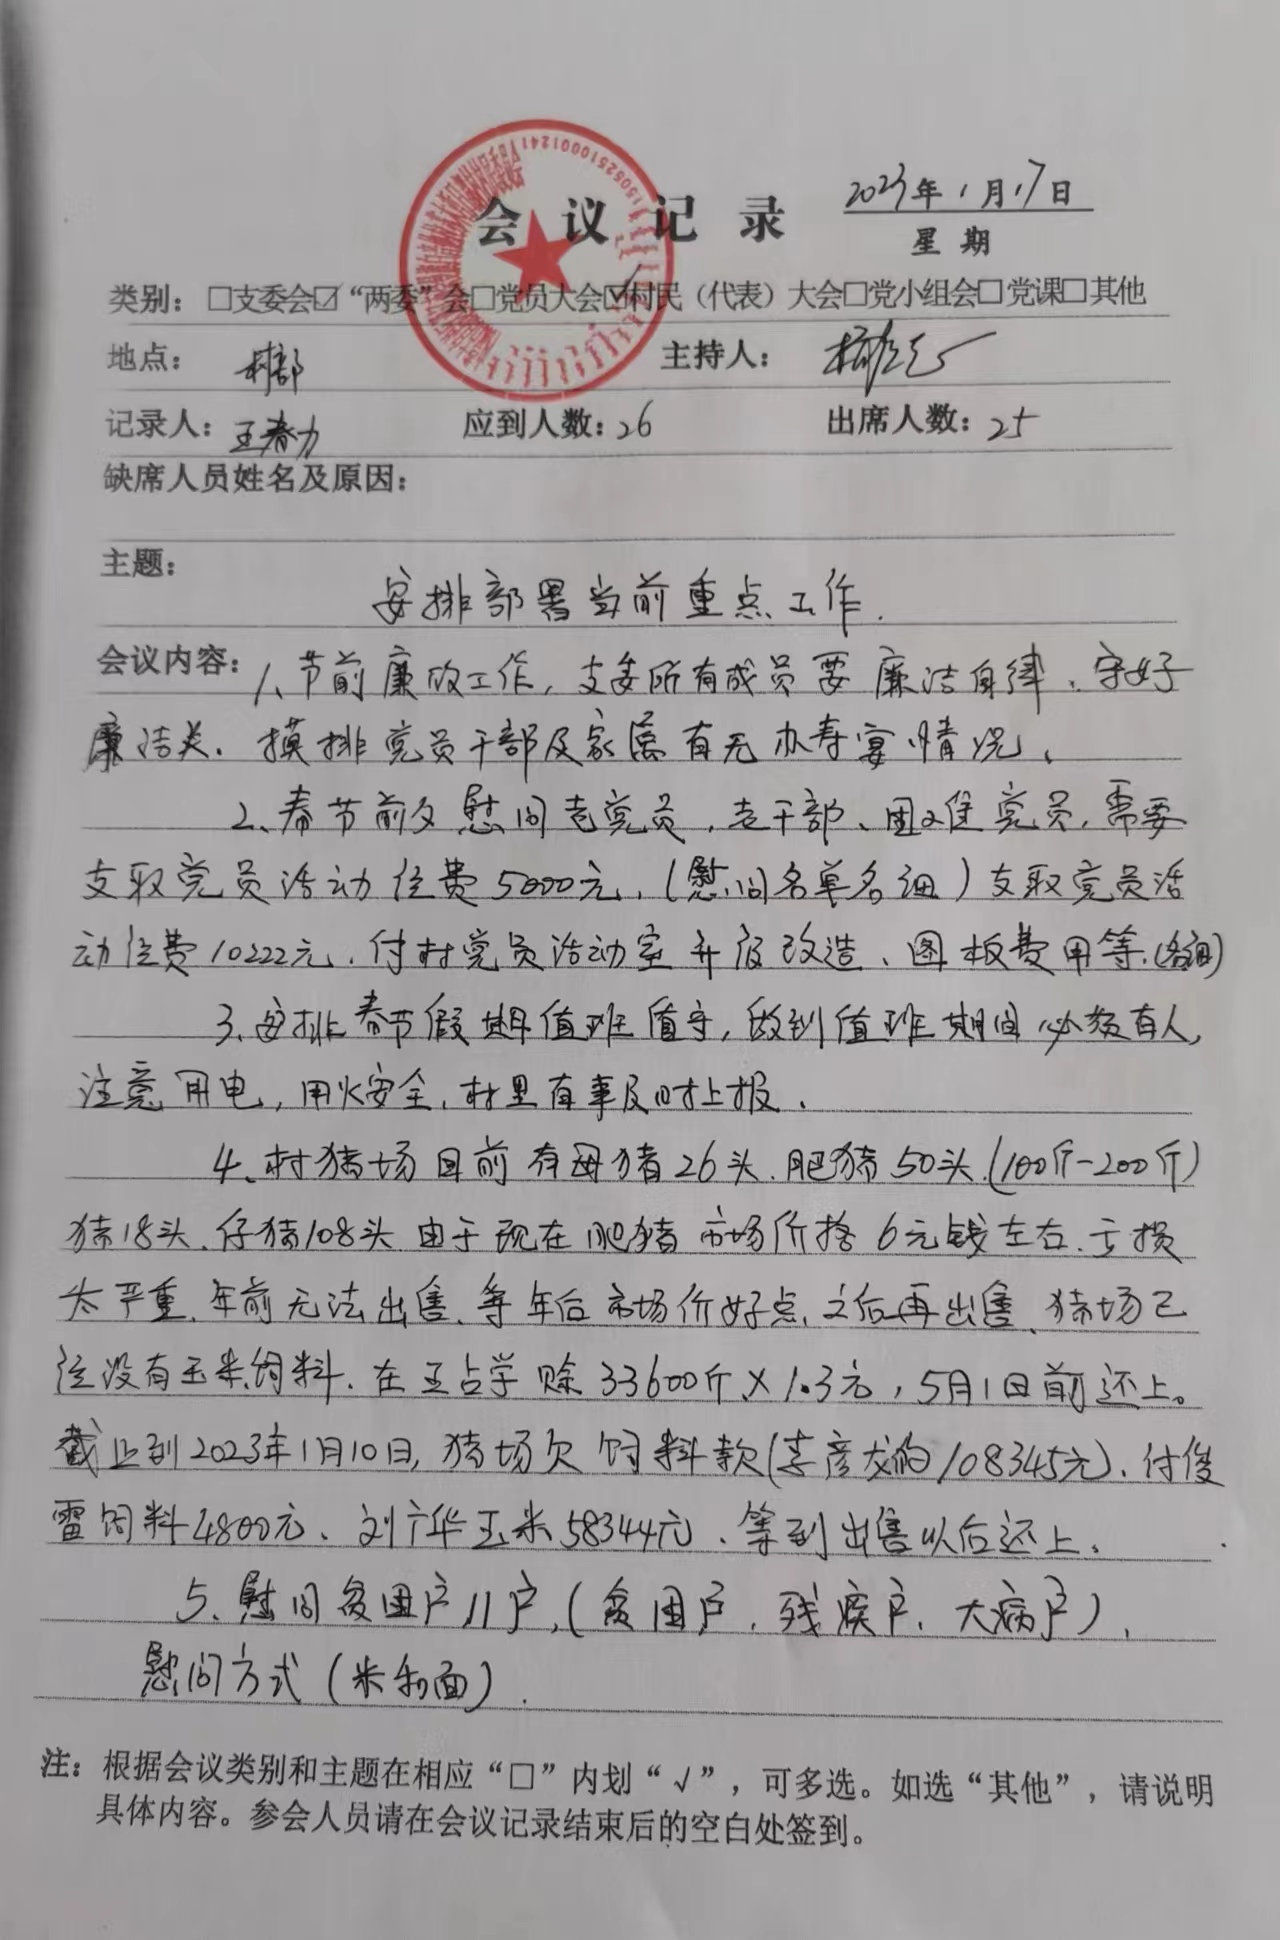 会议记录
2023年1月17日
星期
类别：□支委会☑“两委”会□党员大会☑村民（代表）大会□党小组会□党课□其他
地点： 村部 主持人：
记录人：王春力 应到人数：26 出席人数：25
缺席人员姓名及原因：
主题：
安排部署当前重点工作.
会议内容：1、节前廉政工作，支委所有成员要廉洁自律、守好
廉洁关、摸排党员干部及家属有无办寿宴情况、
2、春节前夕慰问老党员，老干部、困难党员，需要
支取党员活动经费5000元，(慰问名单名细)支取党员活
动经费10222元，付村党员活动室开展改造、图板费用等，(名细)
3、安排春节假期值班值守，做到值班期间必须有人，
注意用电，用火安全，村里有事及时上报、
4、村猪场目前有母猪26头、肥猪50头(100斤-200斤)
猪18头、仔猪108头 由于现在肥猪市场价格6元钱左右、亏损
太严重，年前无法出售、等年后市场价好点，之后再出售、猪场已
经没有玉米饲料、在王占学赊33600斤×1.3元，5月1日前还上。
截止到2023年1月10日，猪场欠饲料款(李彦龙的108345元)、付俊
雷饲料4800元、刘广华玉米58344元、等到出售以后还上、
5、慰问贫困户11户，(贫困户，残疾户，大病户)，
慰问方式(米和面).
注：根据会议类别和主题在相应“□”内划“√”，可多选。如选“其他”，请说明
具体内容。参会人员请在会议记录结束后的空白处签到。
15052510001241